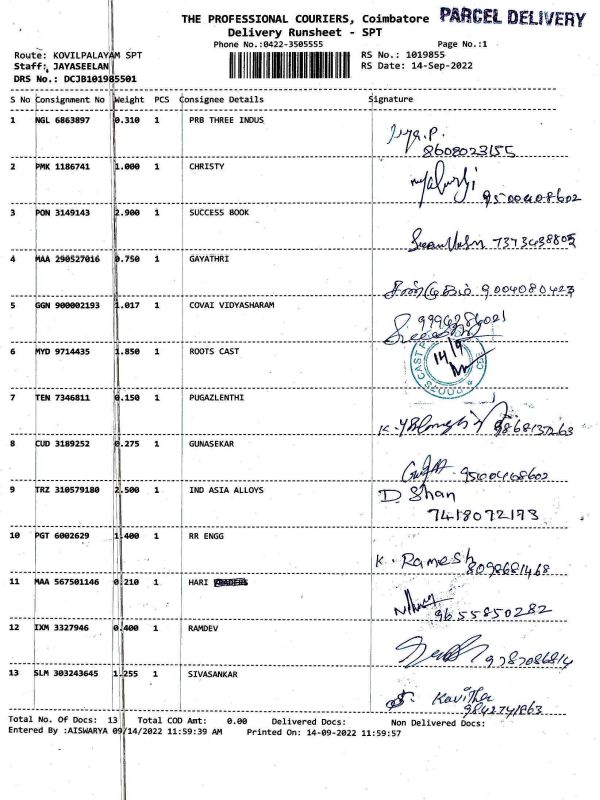 THE PROFESSIONAL COURIERS, Coimbatore PARCEL DELIVERY
Delivery Runsheet - SPT
Phone No.:0422-3505555 Page No.:1
Route: KOVILPALAYAM SPT RS No.: 1019855
Staff: JAYASEELAN RS Date: 14-Sep-2022
DRS No.: DCJB101985501
S No Consignment No Weight PCS Consignee Details Signature
1 NGL 6863897 0.310 1 PRB THREE INDUS
8608023155
2 PMK 1186741 1.000 1 CHRISTY
9500408602
3 PON 3149143 2.900 1 SUCCESS BOOK
7373438805
4 MAA 290527016 0.750 1 GAYATHRI
சண்முகம் 9004080423
5 GGN 900002193 1.017 1 COVAI VIDYASHARAM
6 MYD 9714435 1.850 1 ROOTS CAST
14/9
7 TEN 7346811 0.150 1 PUGAZLENTHI
8 CUD 3189252 0.275 1 GUNASEKAR
9 TRZ 310579180 2.500 1 IND ASIA ALLOYS
D. Shan
7418072173
10 PGT 6002629 1.400 1 RR ENGG
K. Ramesh 8098681468
11 MAA 567501146 0.210 1 HARI
9655850282
12 IXM 3327946 0.400 1 RAMDEV
9787086814
13 SLM 303243645 1.255 1 SIVASANKAR
S. Kavitha
9842741863
Total No. Of Docs: 13 Total COD Amt: 0.00 Delivered Docs: Non Delivered Docs:
Entered By :AISWARYA 09/14/2022 11:59:39 AM Printed On: 14-09-2022 11:59:57